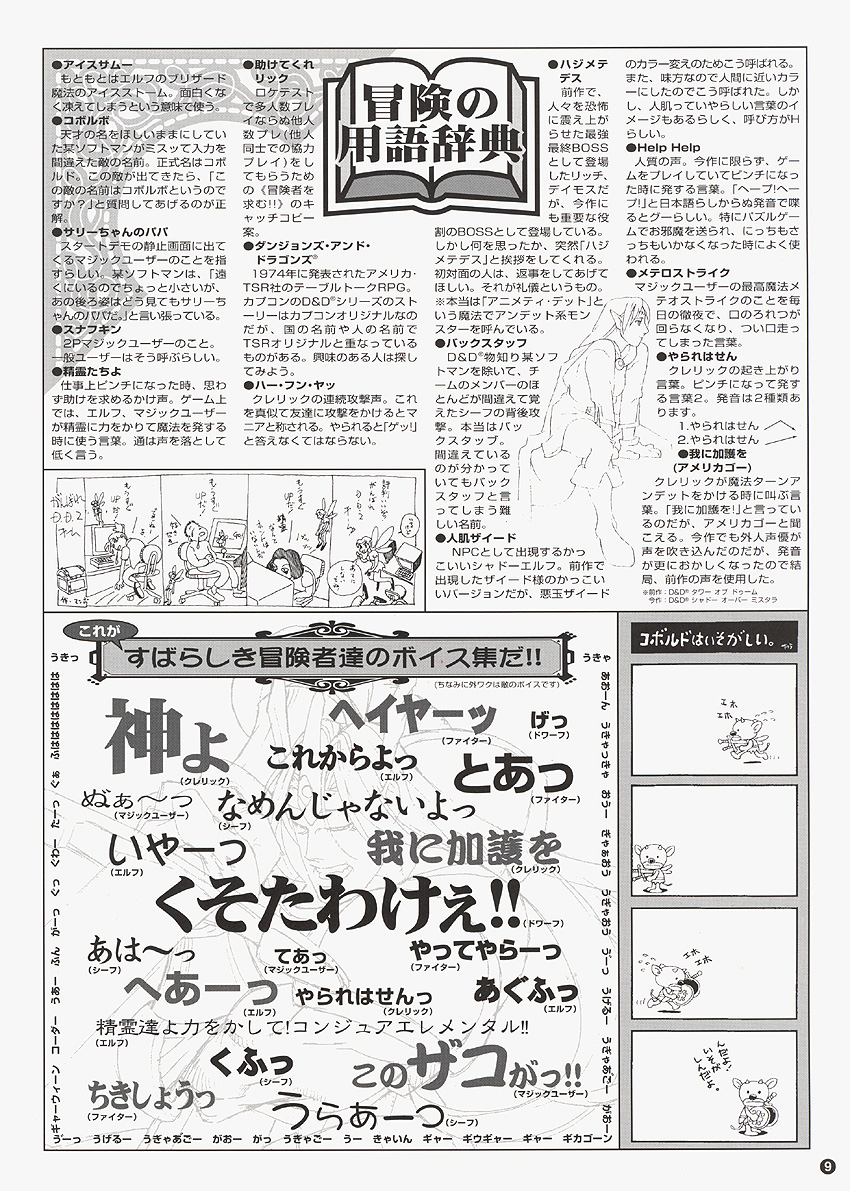 冒険の
用語辞典
●アイスサムー
もともとはエルフのブリザード
魔法のアイスストーム。面白くな
く凍えてしまうという意味で使う。
●コボルボ
天才の名をほしいままにしてい
た某ソフトマンがミスッて入力を
間違えた敵の名前。正式名はコボ
ルド。この敵が出てきたら、「こ
の敵の名前はコボルボというので
すか?」と質問してあげるのが正
解。
●サリーちゃんのパパ
スタートデモの静止画面に出て
くるマジックユーザーのことを指
すらしい。某ソフトマンは、「遠
くにいるのでちょっと小さいが、
あの後ろ姿はどう見てもサリーち
ゃんのパパだ。」と言い張っている。
●スナフキン
2Pマジックユーザーのこと。
一般ユーザーはそう呼ぶらしい。
●精霊たちよ
仕事上ピンチになった時、思わ
ず助けを求めるかけ声。ゲーム上
では、エルフ、マジックユーザー
が精霊に力をかりて魔法を発する
時に使う言葉。通は声を落として
低く言う。
●助けてくれ
リック
ロケテスト
で多人数プレ
イならぬ他人
数プレイ(他人
同士での協力
プレイ)をし
てもらうため
の《冒険者を
求む!!》のキ
ャッチコピー
案。
●ダンジョンズ・アンド・
ドラゴンズ®
1974年に発表されたアメリカ・
TSR社のテーブルトークRPG。
カプコンのD&D®シリーズのスト
ーリーはカプコンオリジナルなの
だが、国の名前や人の名前で
TSRオリジナルと重なっている
ものがある。興味のある人は探し
てみよう。
●ハー・フン・ヤッ
クレリックの連続攻撃声。これ
を真似て友達に攻撃をかけるとマ
ニアと称される。やられると「ゲッ!」
と答えなくてはならない。
●ハジメテ
デス
前作で、
人々を恐怖
に震え上が
らせた最強
最終BOSS
として登場
したリッチ、
デイモスだ
が、今作に
も重要な役
割のBOSSとして登場している。
しかし何を思ったか、突然「ハジ
メテデス」と挨拶をしてくれる。
初対面の人は、返事をしてあげて
ほしい。それが礼儀というもの。
※本当は「アニメティ・デット」と
いう魔法でアンデット系モン
スターを呼んでいる。
●バックスタッフ
D&D®物知り某ソフ
トマンを除いて、チ
ームのメンバーのほ
とんどが間違えて覚
えたシーフの背後攻
撃。本当はバッ
クスタッブ。
間違えている
のが分かって
いてもバック
スタッフと言
ってしまう難
しい名前。
●人肌ザイード
NPCとして出現するかっ
こいいシャドーエルフ。前作で
出現したザイード様のかっこい
いバージョンだが、悪玉ザイード
のカラー変えのためこう呼ばれる。
また、味方なので人間に近いカラ
ーにしたのでこう呼ばれた。しか
し、人肌っていやらしい言葉のイ
メージもあるらしく、呼び方がH
らしい。
●Help Help
人質の声。今作に限らず、ゲー
ムをプレイしていてピンチになっ
た時に発する言葉。「ヘープ!ヘー
プ!」と日本語らしからぬ発音で喋
るとグーらしい。特にパズルゲー
ムでお邪魔を送られ、にっちもさ
っちもいかなくなった時によく使
われる。
●メテロストライク
マジックユーザーの最高魔法メ
テオストライクのことを毎
日の徹夜で、口のろれつが
回らなくなり、つい口走っ
てしまった言葉。
●やられはせん
クレリックの起き上がり
言葉。ピンチになって発す
る言葉2。発音は2種類あ
ります。
1.やられはせん
2.やられはせん
●我に加護を
(アメリカゴー)
クレリックが魔法ターンア
ンデットをかける時に叫ぶ言
葉。「我に加護を!」と言ってい
るのだが、アメリカゴーと聞
こえる。今作でも外人声優が
声を吹き込んだのだが、発音
が更におかしくなったので結
局、前作の声を使用した。
※前作:D&D® タワー オブ ドゥーム
今作:D&D® シャドー オーバー ミスタラ
これが
すばらしき冒険者達のボイス集だ!!
(ちなみに外ワクは敵のボイスです)
うきっ
うきゃ
神よ
(クレリック)
ヘイヤーッ
(ファイター)
げっ
(ドワーフ)
これからよっ
(エルフ)
とあっ
(ファイター)
ぬぁぁ〜っ
(マジックユーザー)
なめんじゃないよっ
(シーフ)
いやーっ
(エルフ)
我に加護を
(クレリック)
くそたわけぇ!!
(ドワーフ)
あは〜っ
(シーフ)
てあっ
(マジックユーザー)
やってやらーっ
(ファイター)
へあーっ
(エルフ)
やられはせんっ
(クレリック)
あぐふっ
(エルフ)
精霊達よ力をかして!コンジュアエレメンタル!!
(エルフ)
くふっ
(シーフ)
このザコがっ!!
(マジックユーザー)
ちきしょうっ
(ファイター)
うらあーっ
(シーフ)
う゛ーっ うげるー うきゃあごー がおー がっ うきゃごー うー きゃいん ギャー ギウギャー ギャー ギカゴーン
コボルドはいそがしい。
エホ
エホ
エホ
エホ
んだよ、
いそが
しんだよ。
9